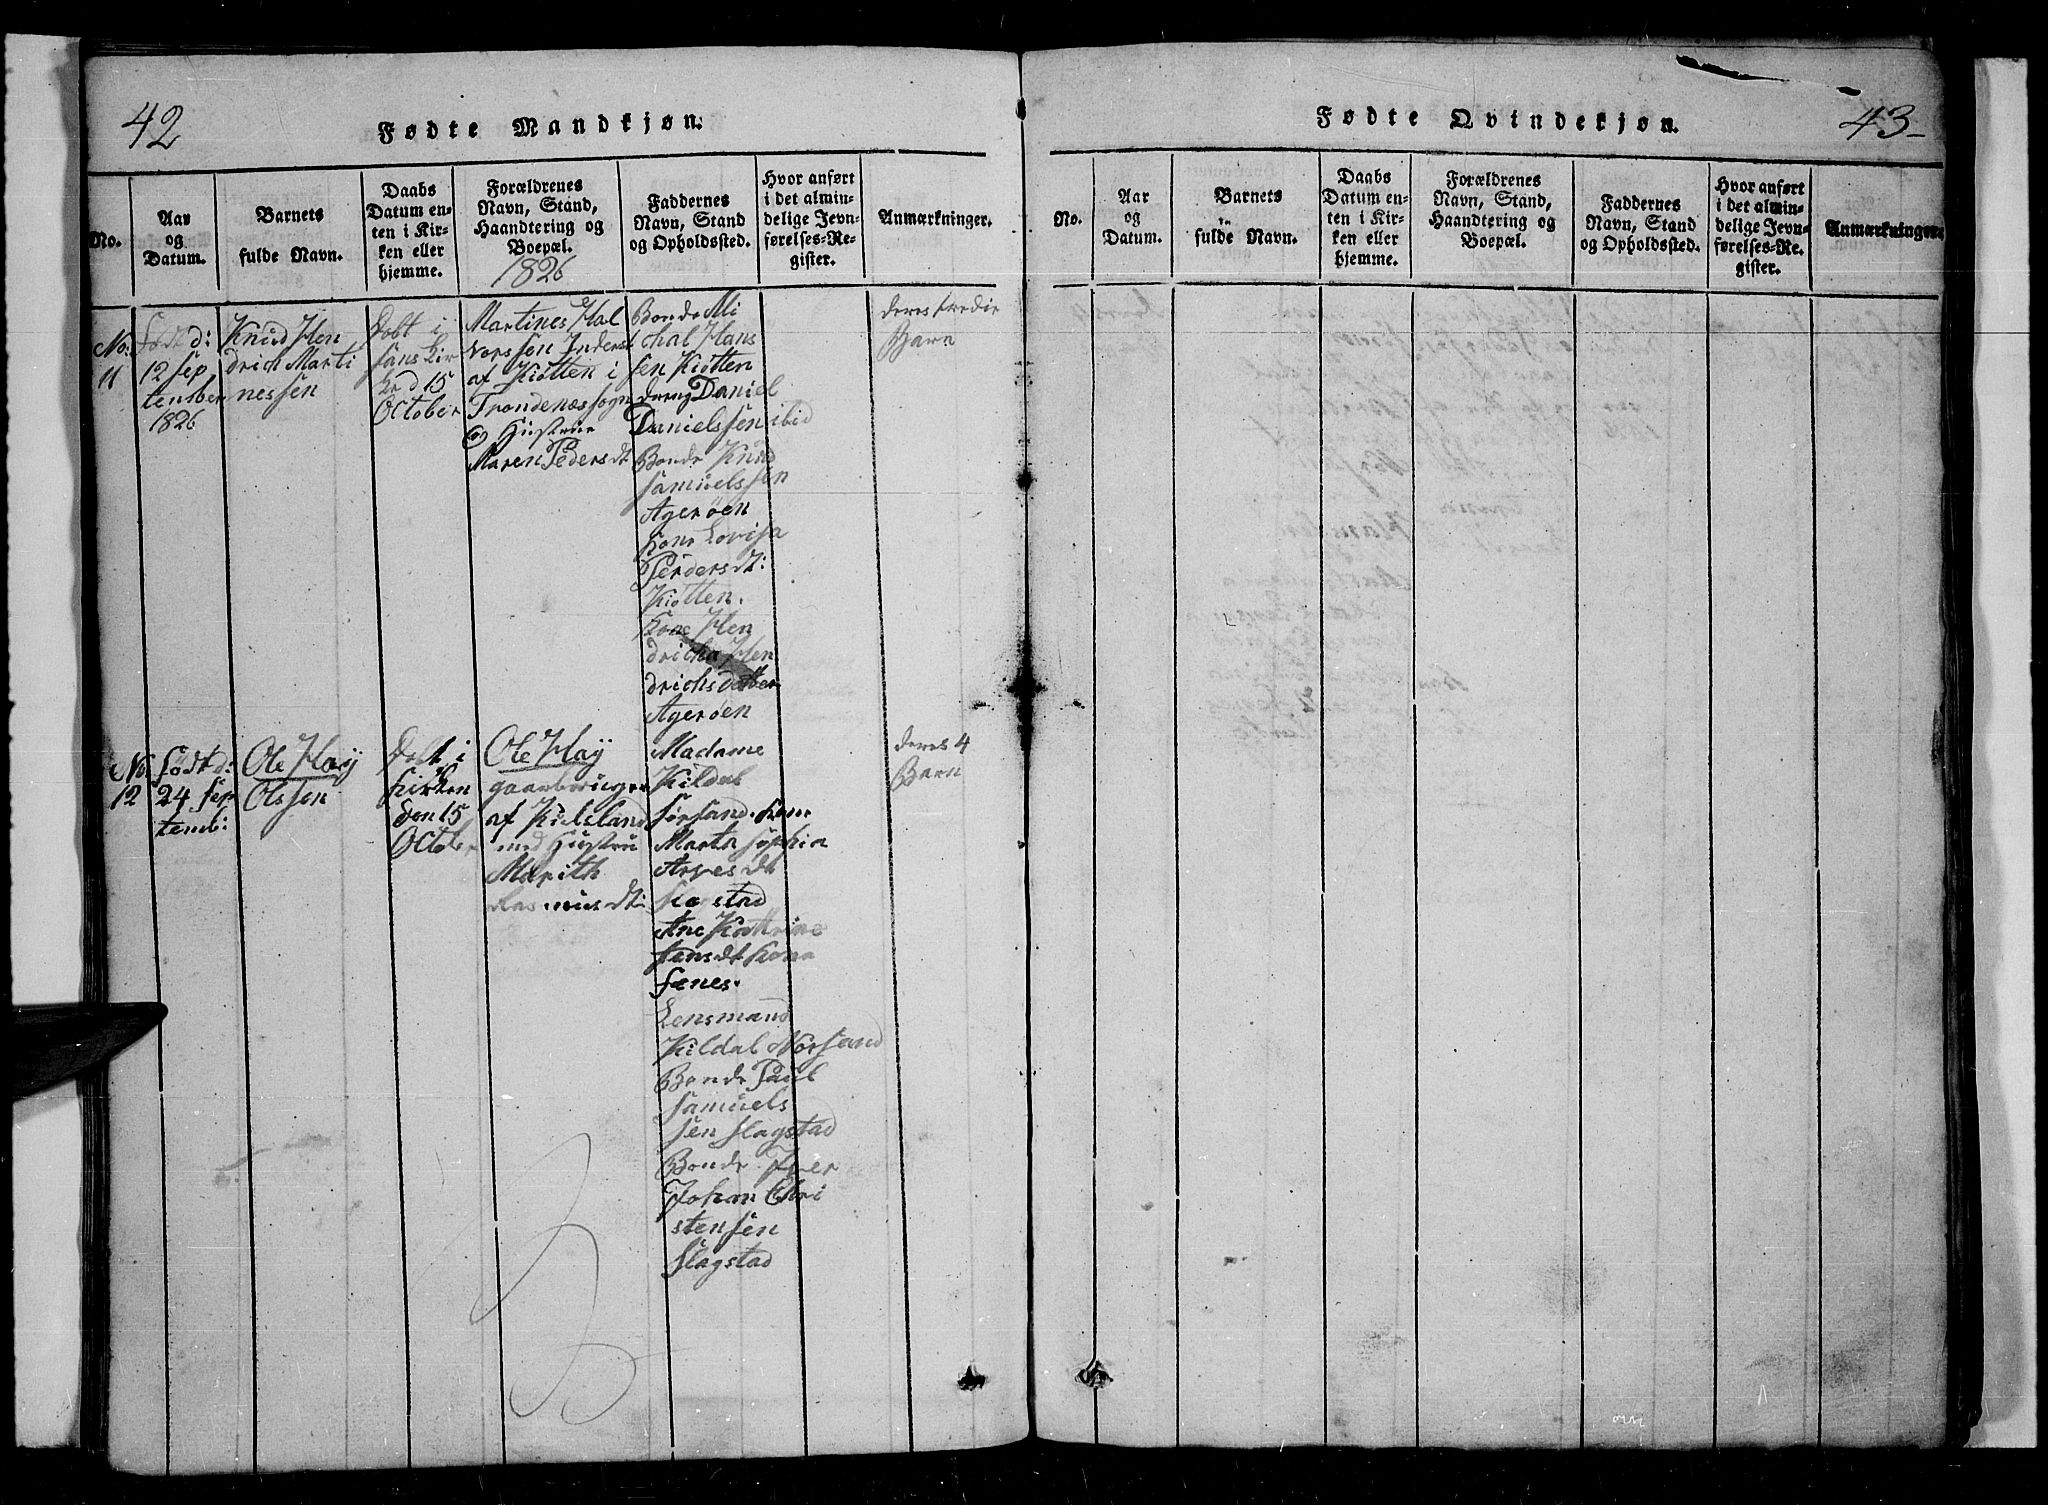 42
Fødte Mandkjøn.
No.
Aar
og
Datum.
Barnets
fulde Navn.
Daabs
Datum en-
ten i Kir-
ken eller
hjemme.
Forældrenes
Navn, Stand,
Haandtering og
Boepæl.
1826
Faddernes
Navn, Stand
og Opholdssted.
Hvor anført
i det almin-
delige Jevn-
førelses-Re-
gister.
Anmærkninger.
No.
11
Født d:
12 Sep
tember
1826
Knud Hen
drich Marti
nessen
Døbt i
Sans Kir
d 15
October
Martines Hal
vorssøn Inderst
af Kiøtten i
Trondenæs sogn
og Hustrue
Maren Pedersdt
Bonde Mi
chal Hans
sen Kiøtten
dreng Daniel
Danielssen ibid
Bonde Knud
Samuelssen
Agerøen
Kone Lovisa
Pedersdt:
Kiøtten.
Kone Hen
dricha Hen
drichsdatter
Agerøen
deres tredie
Barn
No
12
Født d:
24 Sep
temb:
Ole Høy
Olssøn
Døbt i
Kirken
den 15
October
Ole Høy
gaarbruger
af Kielsland
med Hustru
Marith
Rasmusdt:
Madame
Kildal
Sørsand. Kone
Marta Sophia
Aresdt
Slagstad
Ane Kathrine
Hansdt Kone
Sænes.
Lensmand
Kildal Nørsand
Bonde Paul
Samuels
sen Slagstad
Bonde Iver
Johan Chri
stensen
Slagstad
deres 4
Barn
Fødte Qvindekjøn.
43-
No.
Aar
og
Datum.
Barnets
fulde Navn.
Daabs
Datum en-
ten i Kir-
ken eller
hjemme.
Forældrenes
Navn, Stand,
Haandtering og
Boepæl.
Faddernes
Navn, Stand
og Opholdssted.
Hvor anført
i det almin-
delige Jevn-
førelses-Re-
gister.
Anmærkninger.